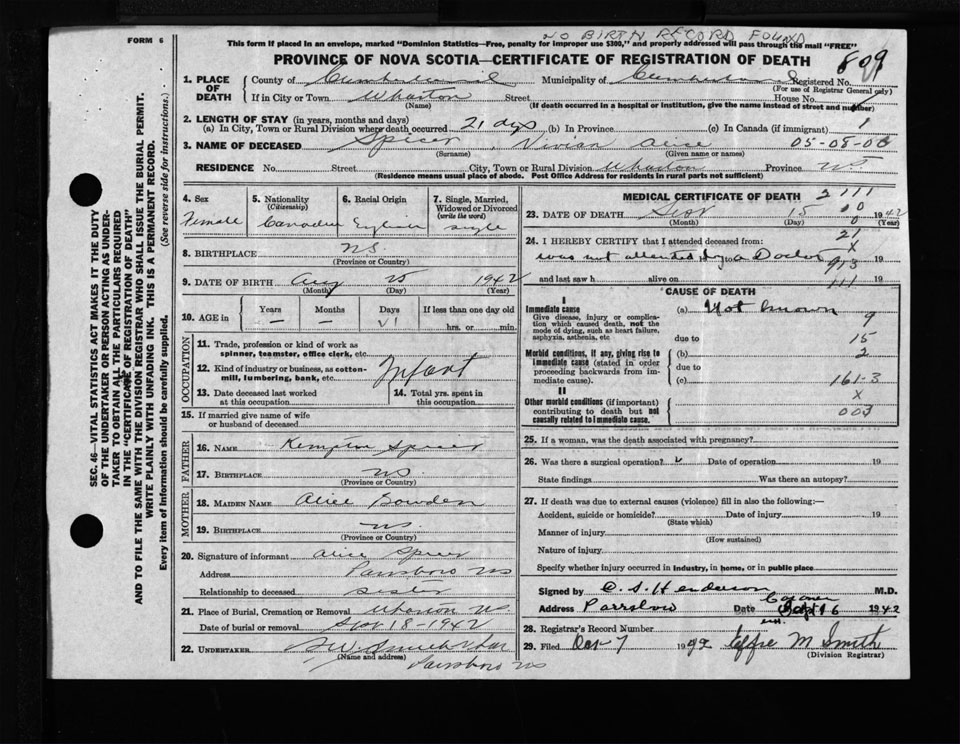 NO BIRTH RECORD FOUND
FORM 6
This form if placed in an envelope, marked "Dominion Statistics—Free, penalty for improper use $300," and properly addressed will pass through the mail "FREE"
PROVINCE OF NOVA SCOTIA—CERTIFICATE OF REGISTRATION OF DEATH
809
SEC. 46—VITAL STATISTICS ACT MAKES IT THE DUTY
OF THE UNDERTAKER OR PERSON ACTING AS UNDER-
TAKER TO OBTAIN ALL THE PARTICULARS REQUIRED
IN THE "CERTIFICATE OF REGISTRATION OF DEATH"
AND TO FILE THE SAME WITH THE DIVISION REGISTRAR WHO SHALL ISSUE THE BURIAL PERMIT.
WRITE PLAINLY WITH UNFADING INK. THIS IS A PERMANENT RECORD.
Every item of Information should be carefully supplied. (See reverse side for instructions.)
1. PLACE OF DEATH
County of Cumberland Municipality of Cumberland Registered No.
(For use of Registrar General only)
If in City or Town Wharton Street House No.
(Name) (If death occurred in a hospital or institution, give the name instead of street and number)
2. LENGTH OF STAY (in years, months and days)
(a) In City, Town or Rural Division where death occurred 21 dys (b) In Province (c) In Canada (if immigrant) 1
3. NAME OF DECEASED Spicer, Vivian Alice 05-08-08
(Surname) (Given name or names)
RESIDENCE No. Street City, Town or Rural Division Wharton Province NS
(Residence means usual place of abode. Post Office Address for residents in rural parts not sufficient)
4. Sex 5. Nationality (Citizenship) 6. Racial Origin 7. Single, Married, Widowed or Divorced (write the word)
Female Canadian English single
8. BIRTHPLACE NS.
(Province or Country)
9. DATE OF BIRTH Aug 25 1942
(Month) (Day) (Year)
10. AGE in Years Months Days If less than one day old
— — 21 hrs. or min.
OCCUPATION
11. Trade, profession or kind of work as
spinner, teamster, office clerk, etc.
12. Kind of industry or business, as cotton-
mill, lumbering, bank, etc. Infant
13. Date deceased last worked
at this occupation
14. Total yrs. spent in
this occupation
15. If married give name of wife
or husband of deceased
FATHER
16. NAME Kempton Spicer
17. BIRTHPLACE NS.
(Province or Country)
MOTHER
18. MAIDEN NAME Alice
19. BIRTHPLACE NS.
(Province or Country)
20. Signature of informant Alice Spicer
Address Parrsboro NS
Relationship to deceased sister
21. Place of Burial, Cremation or Removal Wharton NS.
Date of burial or removal 18-1942
22. UNDERTAKER
(Name and address)
Parrsboro NS
MEDICAL CERTIFICATE OF DEATH 2111
00
23. DATE OF DEATH Sept 15 0 1942
(Month) (Day) (Year)
21
24. I HEREBY CERTIFY that I attended deceased from: X
was not attended by a Doctor 913 19
and last saw h alive on 111 19
CAUSE OF DEATH
I
Immediate cause (a) Not known
Give disease, injury or complica-
tion which caused death, not the
mode of dying, such as heart failure,
asphyxia, asthenia, etc
9
due to 15
Morbid conditions, if any, giving rise to
immediate cause (stated in order
proceeding backwards from im-
mediate cause).
(b) 2
due to
(c) 161-3
II
X
Other morbid conditions (if important)
contributing to death but not
causally related to immediate cause.
003
25. If a woman, was the death associated with pregnancy?
26. Was there a surgical operation? Date of operation 19
State findings Was there an autopsy?
27. If death was due to external causes (violence) fill in also the following:—
Accident, suicide or homicide? Date of injury 19
(State which)
Manner of injury
(How sustained)
Nature of injury
Specify whether injury occurred in industry, in home, or in public place
Signed by C. S. Henderson M.D.
Coroner
Address Parrsboro Date Sept 16 1942
28. Registrar's Record Number
29. Filed 7 1942 Effie M Smith
(Division Registrar)